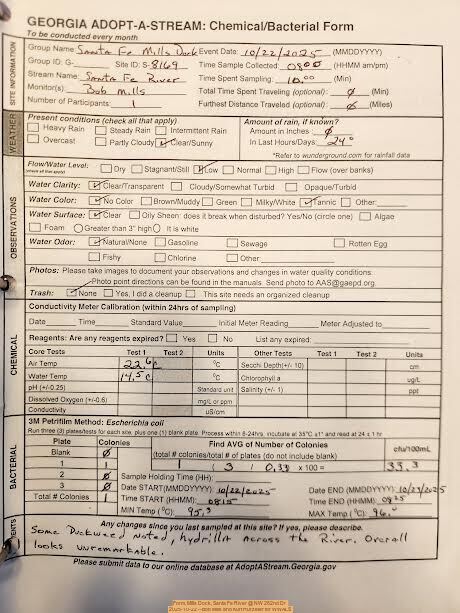 GEORGIA ADOPT-A-STREAM: Chemical/Bacterial Form
To be conducted every month
SITE INFORMATION
Group Name Santa Fe Mills Dock Event Date: 10/22/2025 (MMDDYYYY)
Group ID: G- Site ID: S-8169 Time Sample Collected: 0800 (HHMM am/pm)
Stream Name: Santa Fe River Time Spent Sampling: 10.00 (Min)
Monitor(s): Bob Mills Total Time Spent Traveling (optional): Ø (Min)
Number of Participants: 1 Furthest Distance Traveled (optional): Ø (Miles)
WEATHER
Present conditions (check all that apply) Amount of rain, if known?
Heavy Rain Steady Rain Intermittent Rain Amount in Inches: Ø
Overcast Partly Cloudy Clear/Sunny In Last Hours/Days: 24°
*Refer to wunderground.com for rainfall data
OBSERVATIONS
Flow/Water Level: Dry Stagnant/Still Low Normal High Flow (over banks)
Water Clarity: Clear/Transparent Cloudy/Somewhat Turbid Opaque/Turbid
Water Color: No Color Brown/Muddy Green Milky/White Tannic Other:
Water Surface: Clear Oily Sheen: does it break when disturbed? Yes/No (circle one) Algae
Foam Greater than 3" high It is white
Water Odor: Natural/None Gasoline Sewage Rotten Egg
Fishy Chlorine Other
Photos: Please take images to document your observations and changes in water quality conditions.
Photo point directions can be found in the manuals. Send photo to AAS@gaepd.org
Trash: None Yes, I did a cleanup This site needs an organized cleanup
CHEMICAL
Conductivity Meter Calibration (within 24hrs of sampling)
Date Time Standard Value Initial Meter Reading Meter Adjusted to
Reagents: Are any reagents expired? Yes No List any expired:
Core Tests Test 1 Test 2 Units Other Tests Test 1 Test 2 Units
Air Temp 22.6c °C Secchi Depth(+/- 10) cm
Water Temp 19.5c °C Chlorophyll a ug/L
pH (+/-0.25) Standard unit Salinity (+/- 1) ppt
Dissolved Oxygen (+/-0.6) mg/L or ppm
Conductivity uS/cm
BACTERIAL
3M Petrifilm Method: Escherichia coli
Run three (3) plates/tests for each site, plus one (1) blank plate. Process within 6-24hrs, incubate at 35°C ±1° and read at 24 ± 1 hr
Plate Colonies Find AVG of Number of Colonies
Blank Ø (total # colonies/total # of plates (do not include blank) cfu/100mL
1 1 1 / 3 / 0.33 x 100 = 33.3
2 Ø Sample Holding Time (HH):
3 Ø Date START (MMDDYYYY) 10/22/2025 Date END (MMDDYYYY) 10/23/2025
Total # Colonies 1 Time START (HHMM) 0815 Time END (HHMM) 0825
MIN Temp (°C) 95.3 MAX Temp (°C) 96.
Any changes since you last sampled at this site? If yes, please describe.
Some Duckweed noted, hydrilla across the River. Overall
looks unremarkable.
Please submit data to our online database at AdoptAStream.Georgia.gov